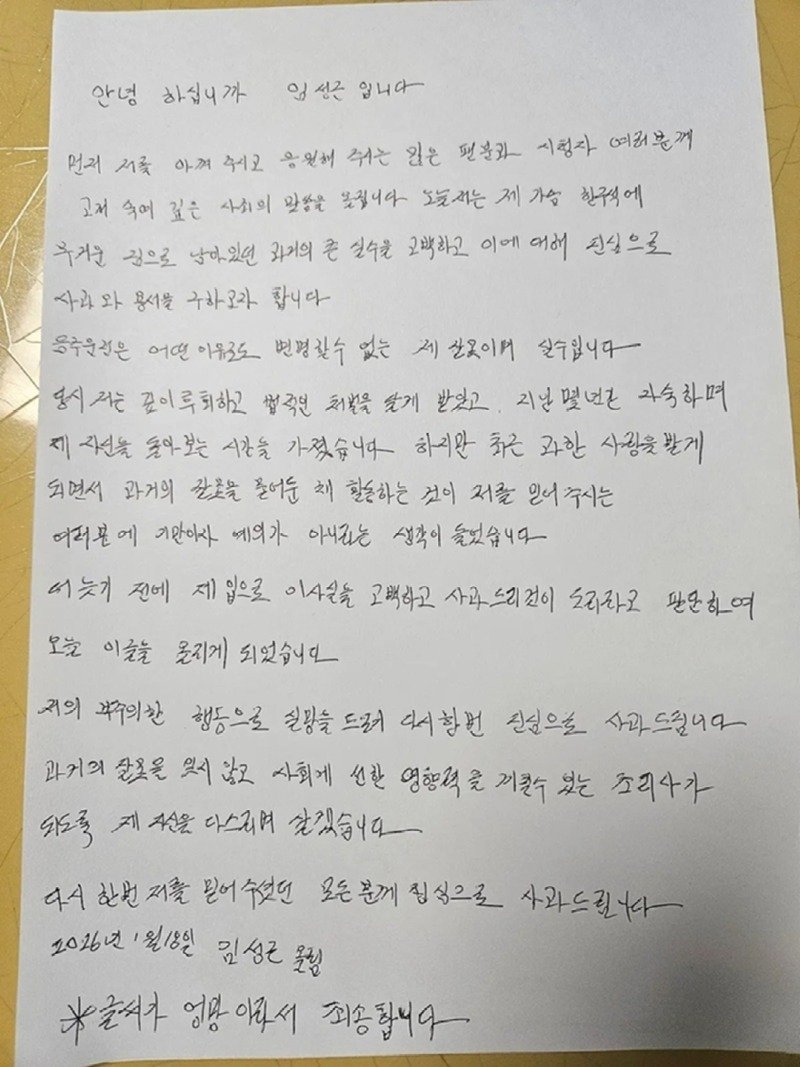 안녕 하십니까 임성근 입니다
먼저 저를 아껴 주시고 응원해 주시는 많은 팬분과 시청자 여러분께
고개 숙여 깊은 사죄의 말씀을 올립니다 오늘 저는 제 가슴 한구석에
무거운 짐으로 남아있던 과거의 큰 실수을 고백하고 이에 대해 진심으로
사과와 용서를 구하고자 합니다
음주운전은 어떤 이유로도 변명할수 없는 제 잘못이며 실수입니다
당시 저는 깊이 후회하고 법적인 처벌을 달게 받았고, 지난 몇년간 자숙하며
제 자신을 돌아보는 시간을 가졌습니다 하지만 최근 과한 사랑을 받게
되면서 과거의 잘못을 묻어둔 채 활동하는 것이 저를 믿어 주시는
여러분에 기만이자 예의가 아니라는 생각이 들었습니다
더 늦기 전에 제 입으로 이사실을 고백하고 사과드리것이 도리라고 판단하여
오늘 이글을 올리게 되었습니다
저의 부주의한 행동으로 실망을 드려 다시한번 진심으로 사과드립니다
과거의 잘못을 잊지 않고 사회게 선한 영향력을 끼칠수 있는 조리사가
되도록 제 자신을 다스리며 살겠습니다
다시 한번 저를 믿어 주셨던 모든 분께 진심으로 사과드립니다
2026년 1월 18일 임성근 올림
※글씨가 엉망이라서 죄송합니다